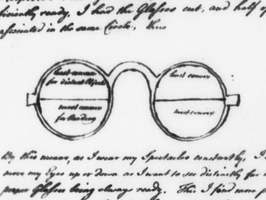 ficiently ready, I had the Glasses cut, and half of
associated in the same Circle, thus
least convex
for distant Objects
least convex
most convex
for Reading
most convex
By this means, as I wear my Spectacles constantly, I
move my Eyes up or down as I want to see distinctly far
proper Glasses being always ready. This I find more